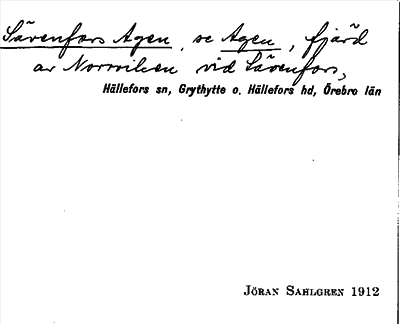 Sävenfors Agen, se Agen, fjärd
av Norrviken vid Sävenfors,
Hällefors sn, Grythytte o. Hällefors hd, Örebro län
JÖRAN SAHLGREN 1912